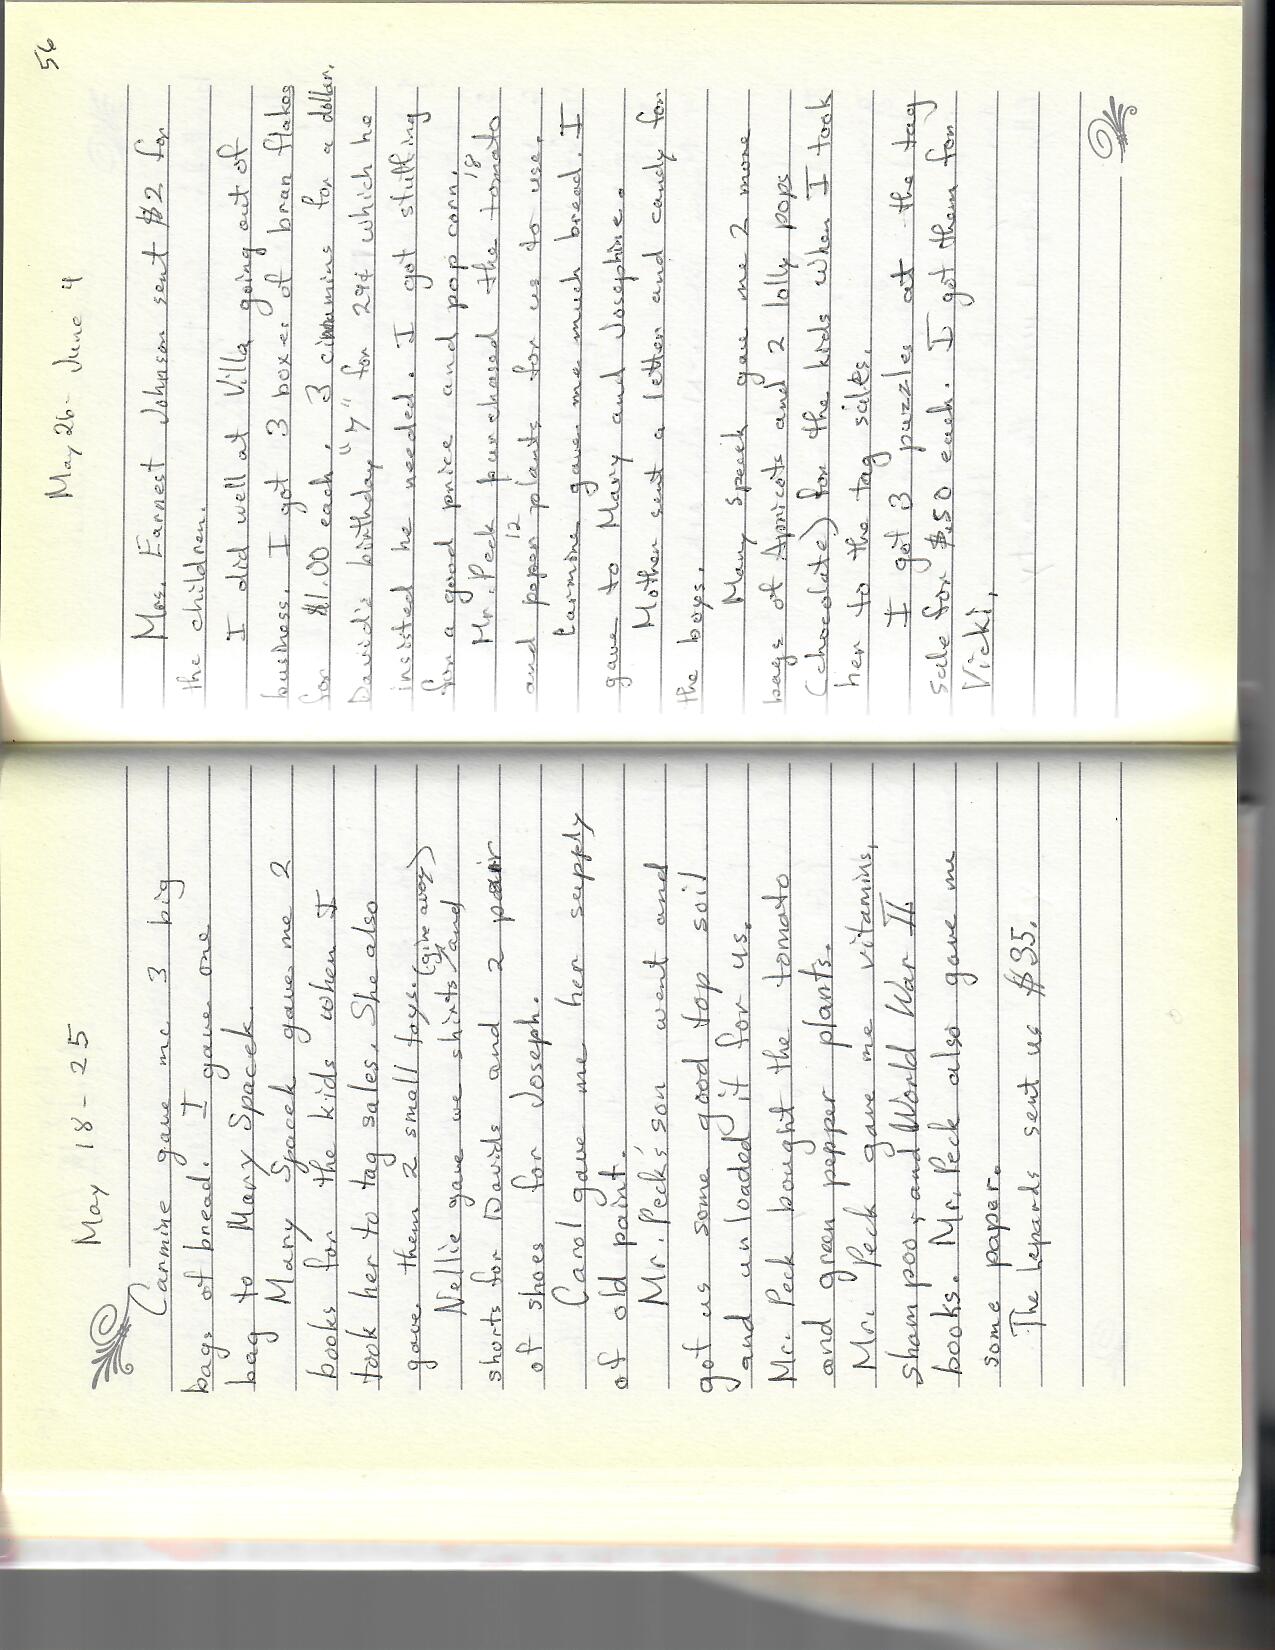 May 18 - 25
Carmine gave me 3 big
bags of bread. I gave one
bag to Mary Spacek.
Mary Spacek gave me 2
books for the kids when I
took her to tag sales. She also
gave them 2 small toys. (give away)
Nellie gave we shirts and
shorts for Davids and 2 pair
of shoes for Joseph.
Carol gave me her supply
of old paint.
Mr. Peck's son went and
got us some good top soil
and unloaded it for us.
Mr. Peck bought the tomato
and green pepper plants.
Mr. Peck gave me vitamins,
shampoo, and World War II
books. Mr. Peck also gave me
some paper.
The Lepards sent us $35.
May 26 - June 4
56
Mrs. Earnest Johnson sent $2 for
the children.
I did well at Villa going out of
business. I got 3 boxes of bran flakes
for $1.00 each, 3 cinnamins for a dollar.
David's birthday "7" for 29¢ which he
insisted he needed. I got stuffing
for a good price and pop corn.
Mr. Peck purchased the 18 tomato
and 12 peper plants for us to use.
Carmine gave me much bread. I
gave to Mary and Josephine.
Mother sent a letter and candy for
the boys.
Mary speck gave me 2 more
bags of Apricots and 2 lolly pops
(chocolate) for the kids when I took
her to the tag sales.
I got 3 puzzles at the tag
sale for $.50 each. I got them for
Vicki.